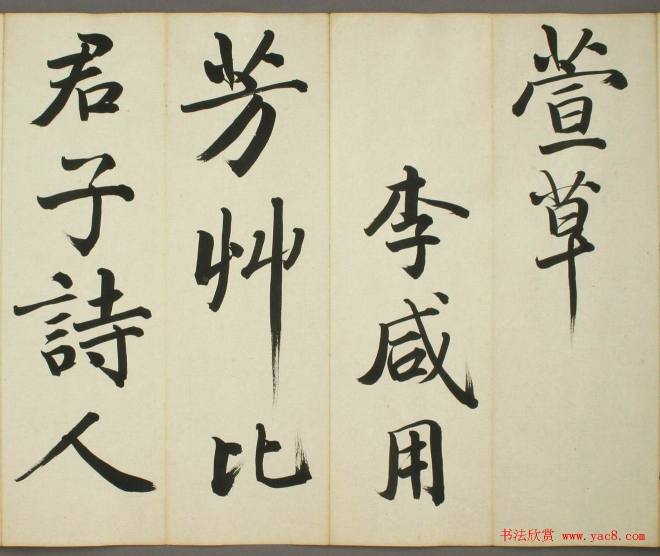 萱草
李咸用
芳艸比
君子詩人
书法欣赏 www.yac8.com